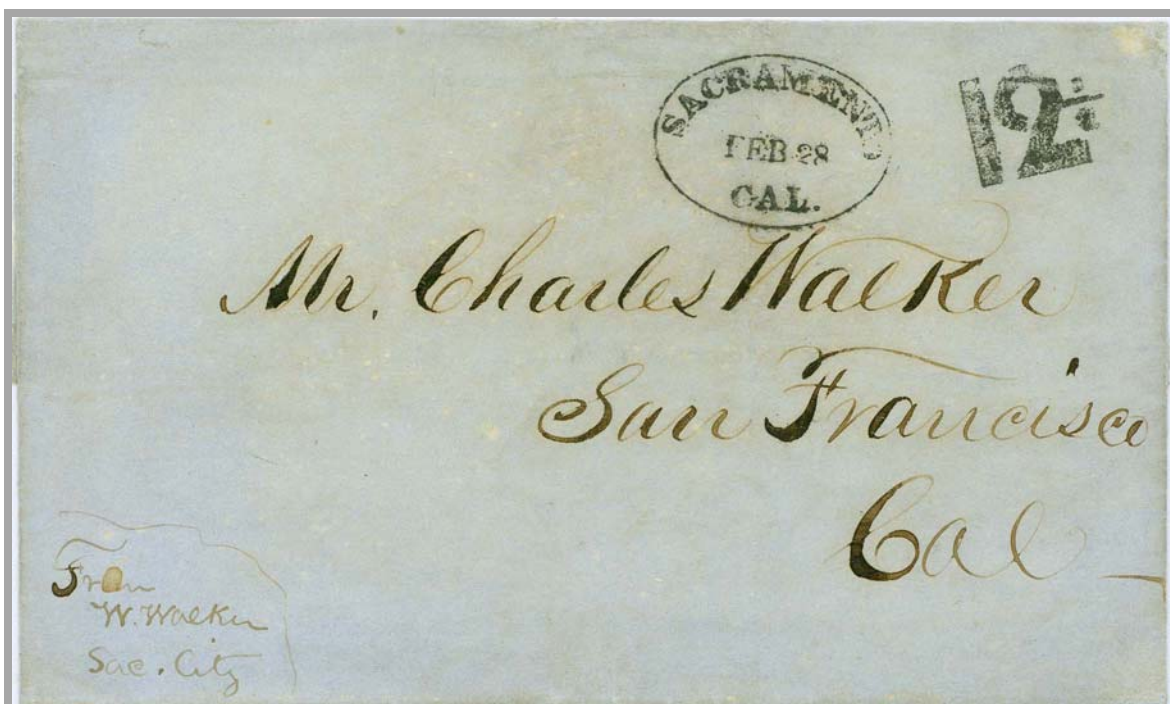 SACRAMENTO
FEB 28
CAL.
12½
Mr. Charles Walker
San Francisco
Cal
From
W. Walker
Sac. City